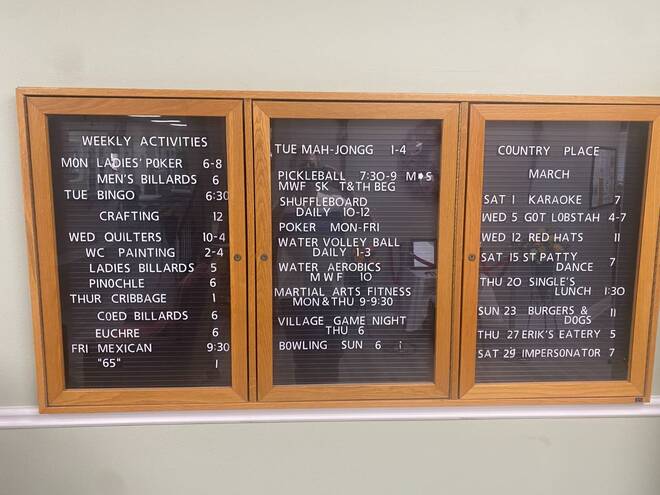 WEEKLY ACTIVITIES
MON LADIES' POKER 6-8
MEN'S BILLARDS 6
TUE BINGO 6:30
CRAFTING 12
WED QUILTERS 10-4
WC PAINTING 2-4
LADIES BILLARDS 5
PINOCHLE 6
THUR CRIBBAGE 1
COED BILLARDS 6
EUCHRE 6
FRI MEXICAN 9:30
"65" 1
TUE MAH-JONGG 1-4
PICKLEBALL 7:30-9 M•S
MWF SK T&TH BEG
SHUFFLEBOARD
DAILY 10-12
POKER MON-FRI
WATER VOLLEY BALL
DAILY 1-3
WATER AEROBICS
M W F 10
MARTIAL ARTS FITNESS
MON & THU 9-9:30
VILLAGE GAME NIGHT
THU 6
BOWLING SUN 6
COUNTRY PLACE
MARCH
SAT 1 KARAOKE 7
WED 5 GOT LOBSTAH 4-7
WED 12 RED HATS 11
SAT 15 ST PATTY
DANCE 7
THU 20 SINGLE'S
LUNCH 1:30
SUN 23 BURGERS & 11
DOGS
THU 27 ERIK'S EATERY 5
SAT 29 IMPERSONATOR 7